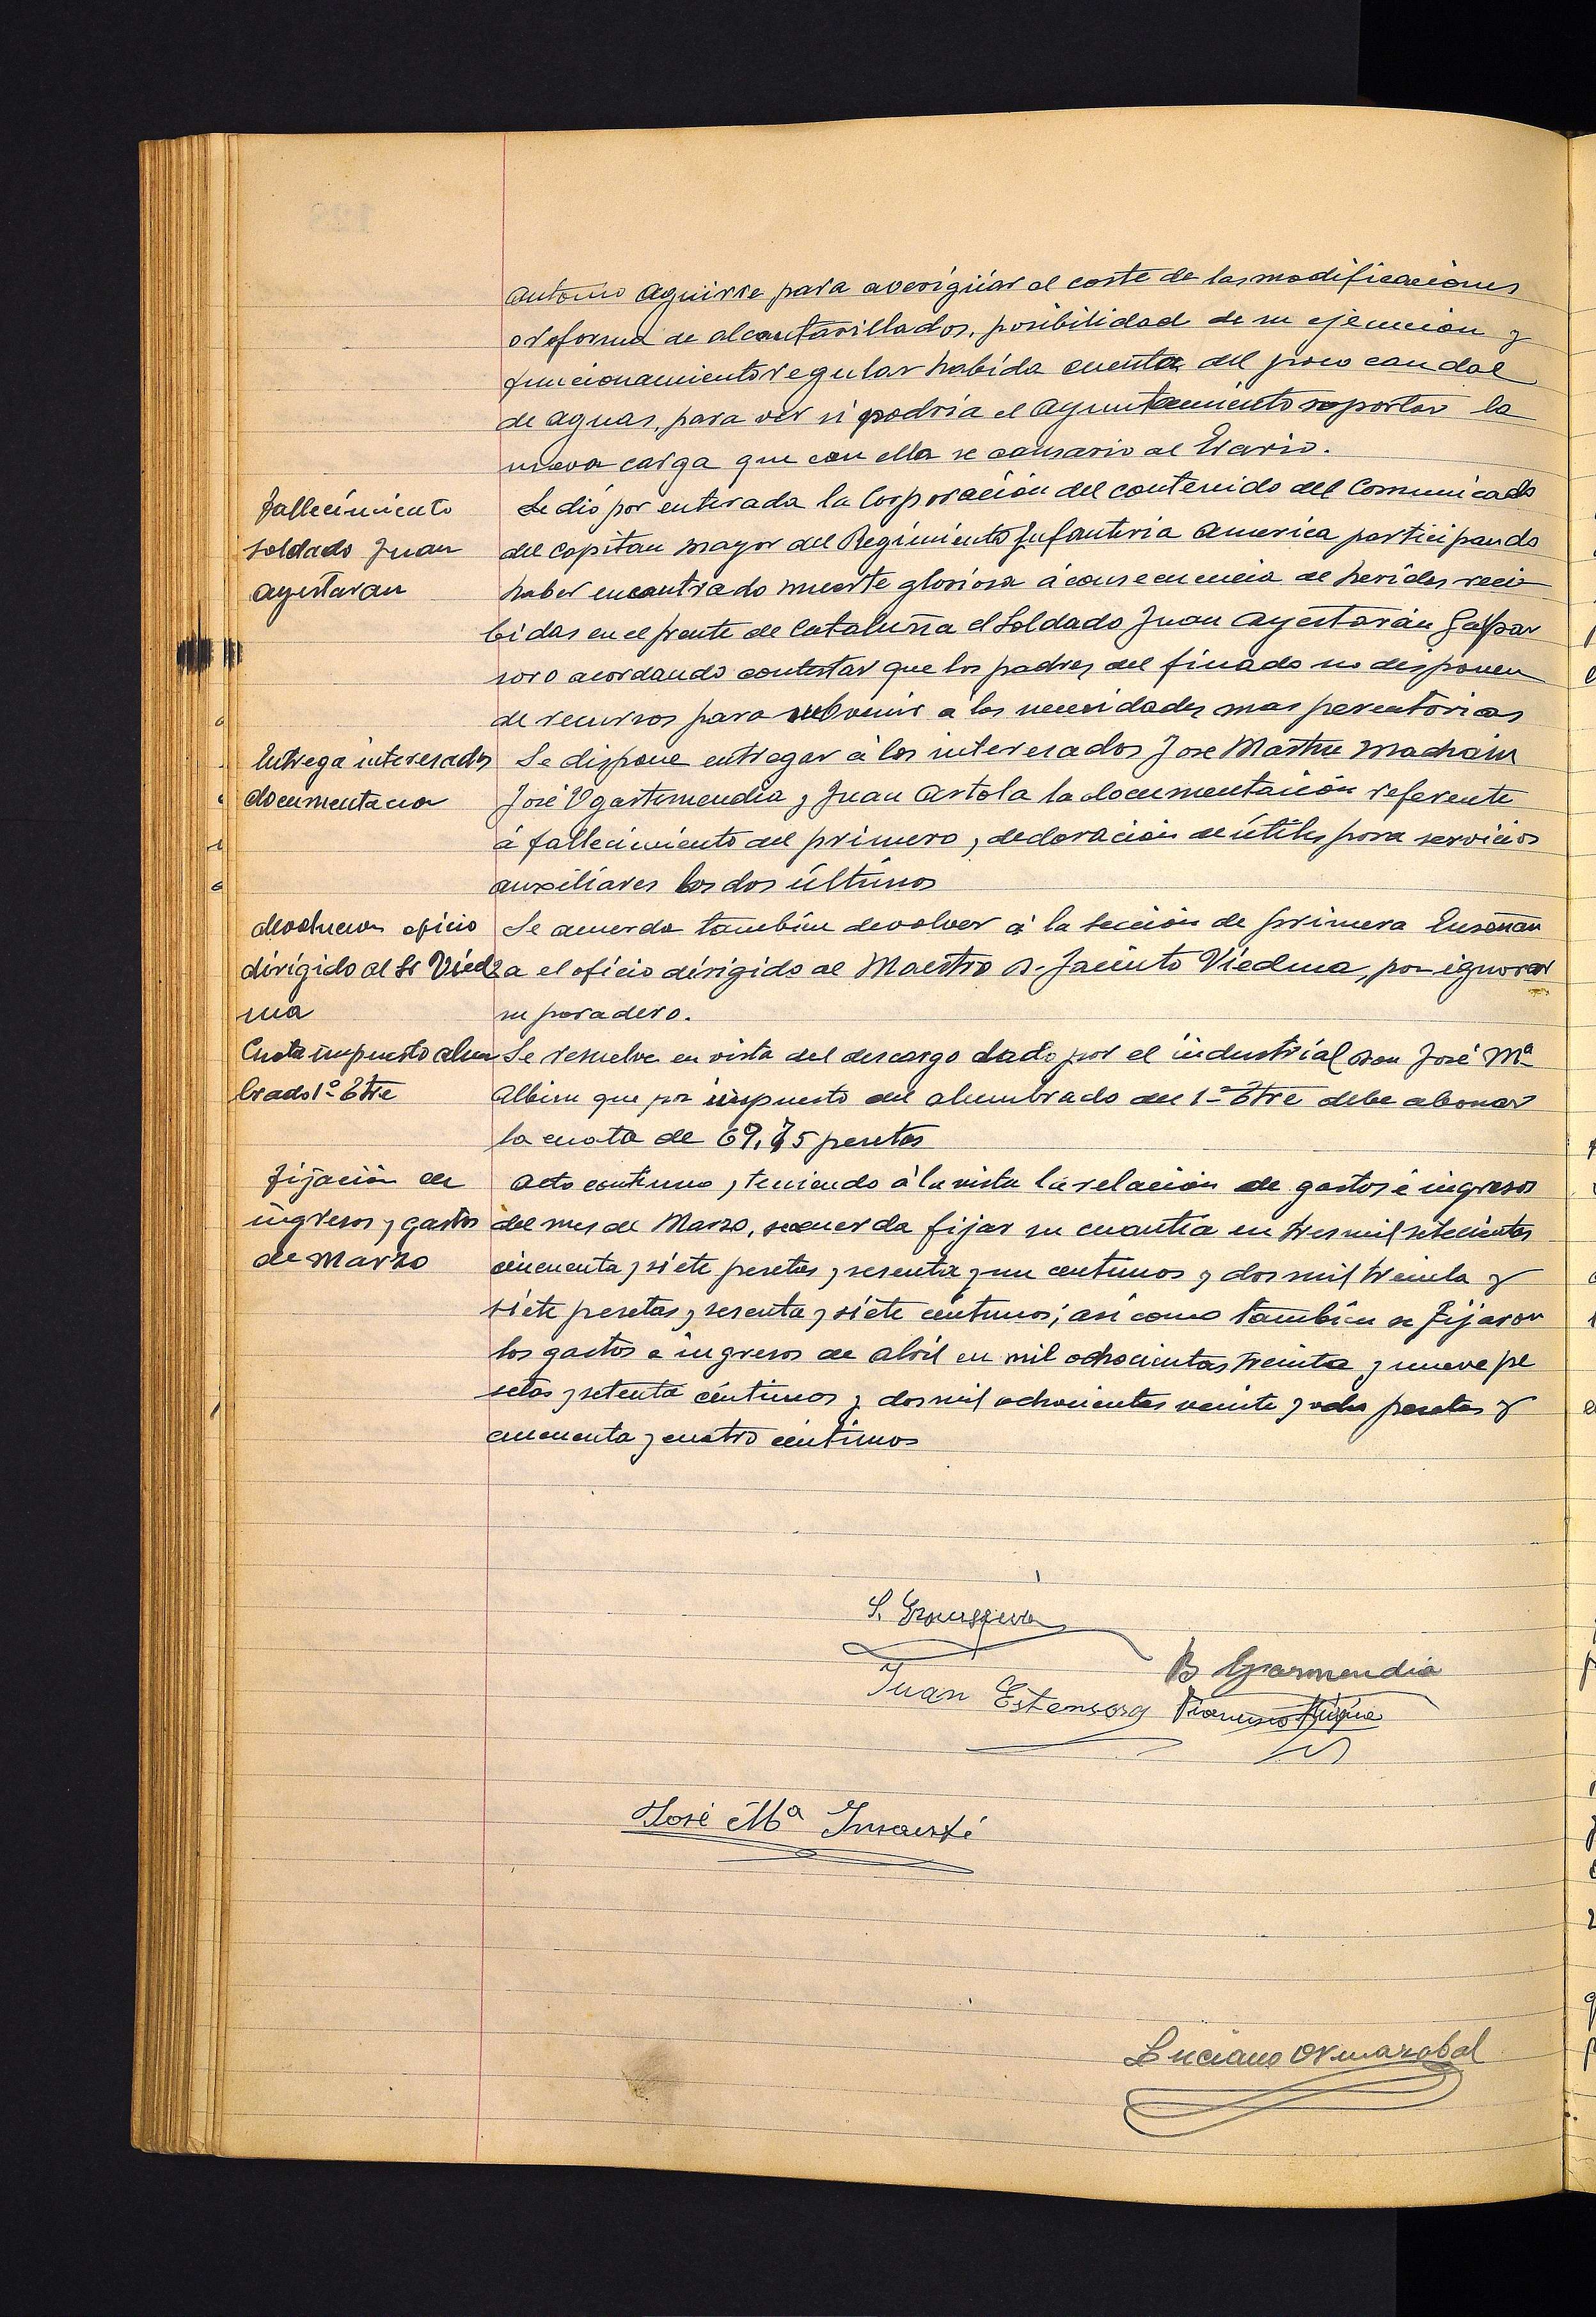 Antonio Aguirre para averigüar el coste de las modificaciones
o reforma de alcantarillados, posibilidad de su ejecución y
funcionamiento regular habida cuenta del poco caudal
de aguas, para ver si podria el Ayuntamiento soportar la
nueva carga que con ella se causaria al Erario.
fallecimiento
soldado Juan
Ayestaran
Se dió por enterada la Corporación del contenido del Comunicado
del Capitan Mayor del Regimiento Infanteria America participando
haber encontrado muerte gloriosa á consecuencia de heridas reci
bidas en el frente de Cataluña el Soldado Juan Ayestarán Gaspar
soro acordando contestar que los padres del finado no disponen
de recursos para subvenir a las necesidades mas perentorias
Entrega interesados
documentacion
Se dispone entregar á los interesados Jose Martin Machain
José Ugartemendia y Juan Artola la documentación referente
á fallecimiento del primero, declaración de útiles para servicios
auxiliares los dos últimos
devolucion oficio
dirigido al Sr Vied
ma
Se acuerda tambien devolver á la sección de primera Enseñan
za el oficio dirigido al Maestro D. Jacinto Viedma, por ignorar
su paradero.
Cuota impuesto alum
brado 1º Etre
Se resuelve en vista del descargo dado por el industrial Don José Mª
Albisu que por impuesto del alumbrado del 1º Etre debe abonar
la cuota de 69,75 pesetas
fijación de
ingresos y gastos
de Marzo
Acto continuo, teniendo á la vista la relación de gastos é ingresos
del mes de Marzo, se acuerda fijar su cuantía en tres mil setecientas
cincuenta y siete pesetas y sesenta y un centimos y dos mil treinta y
siete pesetas y sesenta y siete céntimos; asi como tambien se fijaron
los gastos e ingresos de abril en mil ochocientas treinta y nueve pe
setas y setenta céntimos y dos mil ochocientas veinte y ocho pesetas y
cincuenta y cuatro céntimos
B Garmendia
Juan Estensoro
José Mª Insausti
Luciano Ormazabal